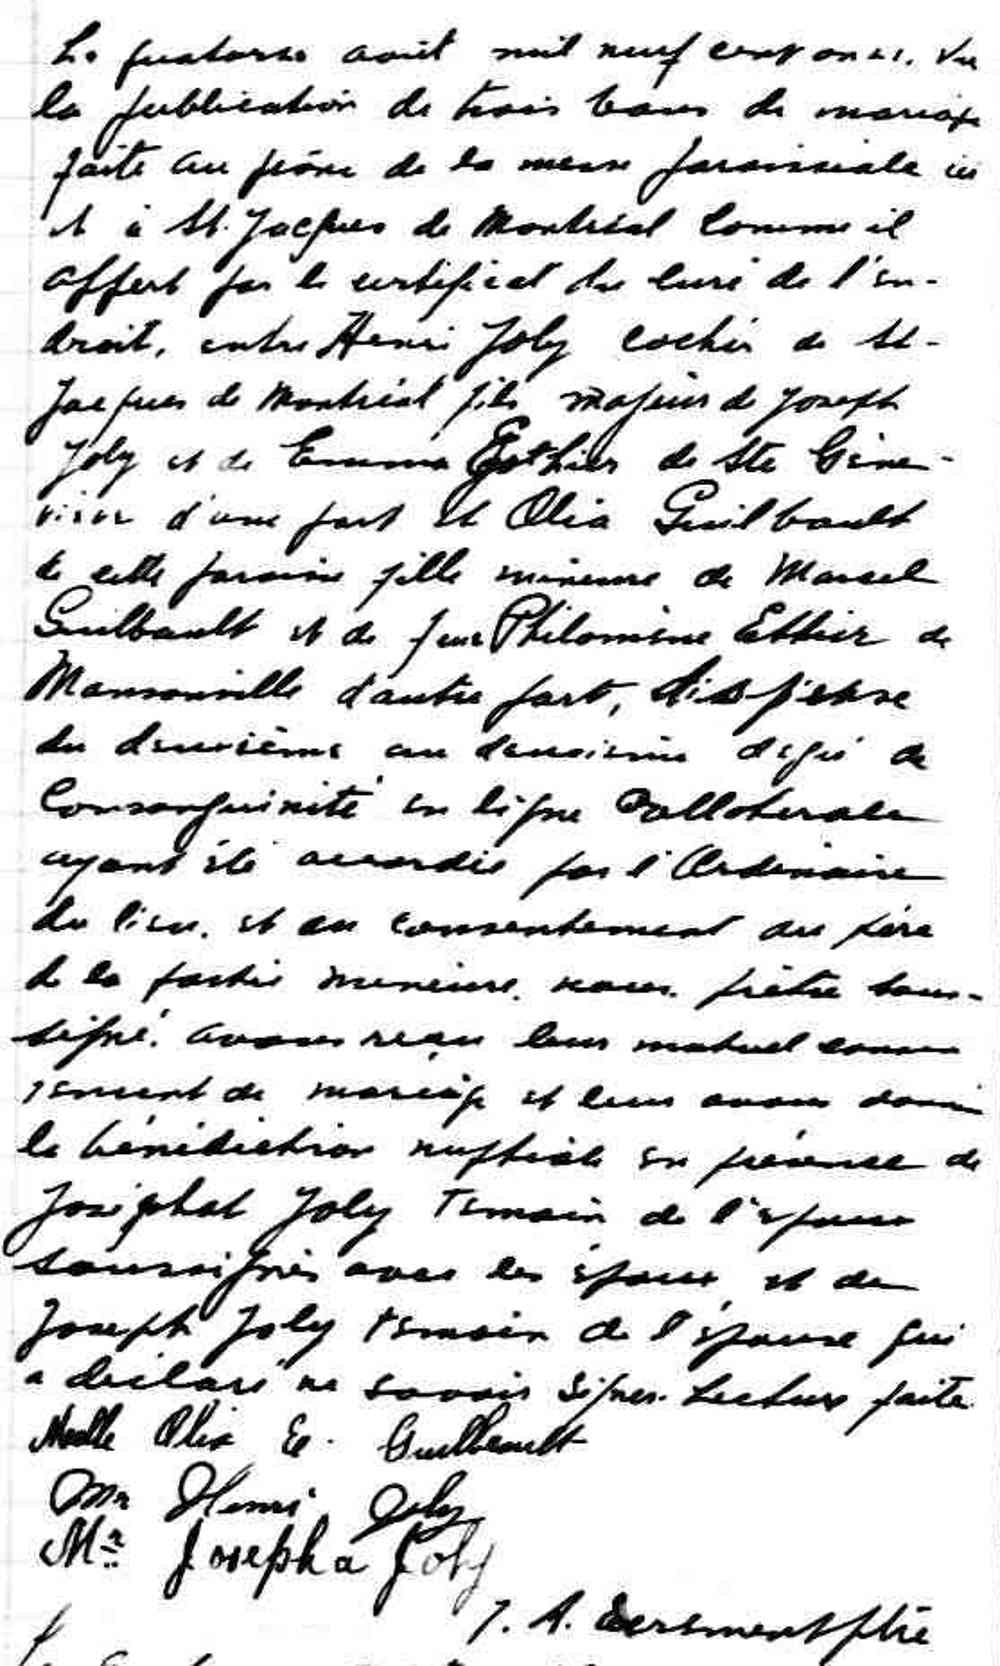 Le quatorze août mil neuf cent onze, vu
la publication de trois bans de mariage
faite au prône de la messe paroissiale ici
et à St. Jacques de Montréal comme il
appert par le certificat du curé de l'en-
droit, entre Henri Joly cocher de St-
Jacques de Montréal fils majeur de Joseph
Joly et de Emma Ethier de Ste Gene-
vieve d'une part et Olia Guilbault
de cette paroisse fille mineure de Marcel
Guilbault et de feue Philomène Ethier de
Mansonville d'autre part, dispense
du deuxième au deuxième degré de
Consanguinité en ligne Collaterale
ayant été accordée par l'Ordinaire
du lieu, et du consentement du père
de la partie mineure, nous, prêtre sous-
signé, avons reçu leur mutuel consen
tement de mariage et leur avons donné
la bénédiction nuptiale en présence de
Josephat Joly temoin de l'epoux
soussignés avec les époux, et de
Joseph Joly temoin de l'épouse qui
a déclaré ne savoir signer. Lecture faite.
Melle Olia E. Guilbeault
Mr Henri Joly
Mr Josepha Joly
J. A. ptre